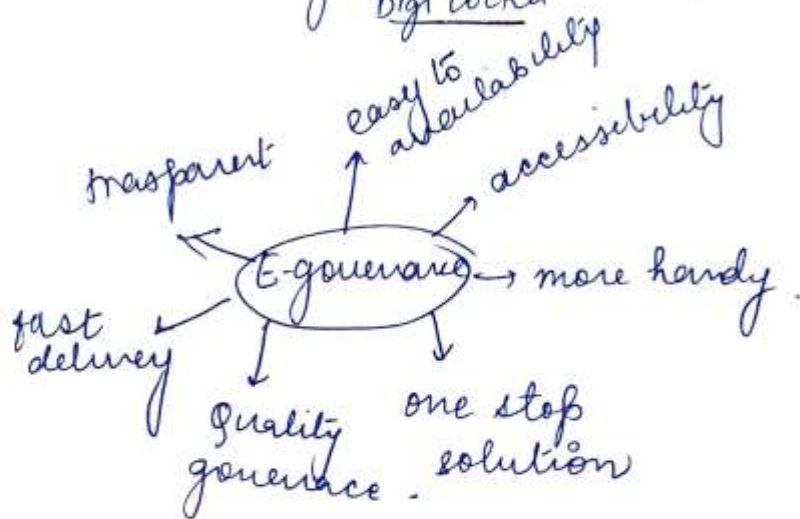 easy to
availability
accessibility
trasparent
E-governance
more handy.
fast
delivery
Quality
governace.
one stop
solution